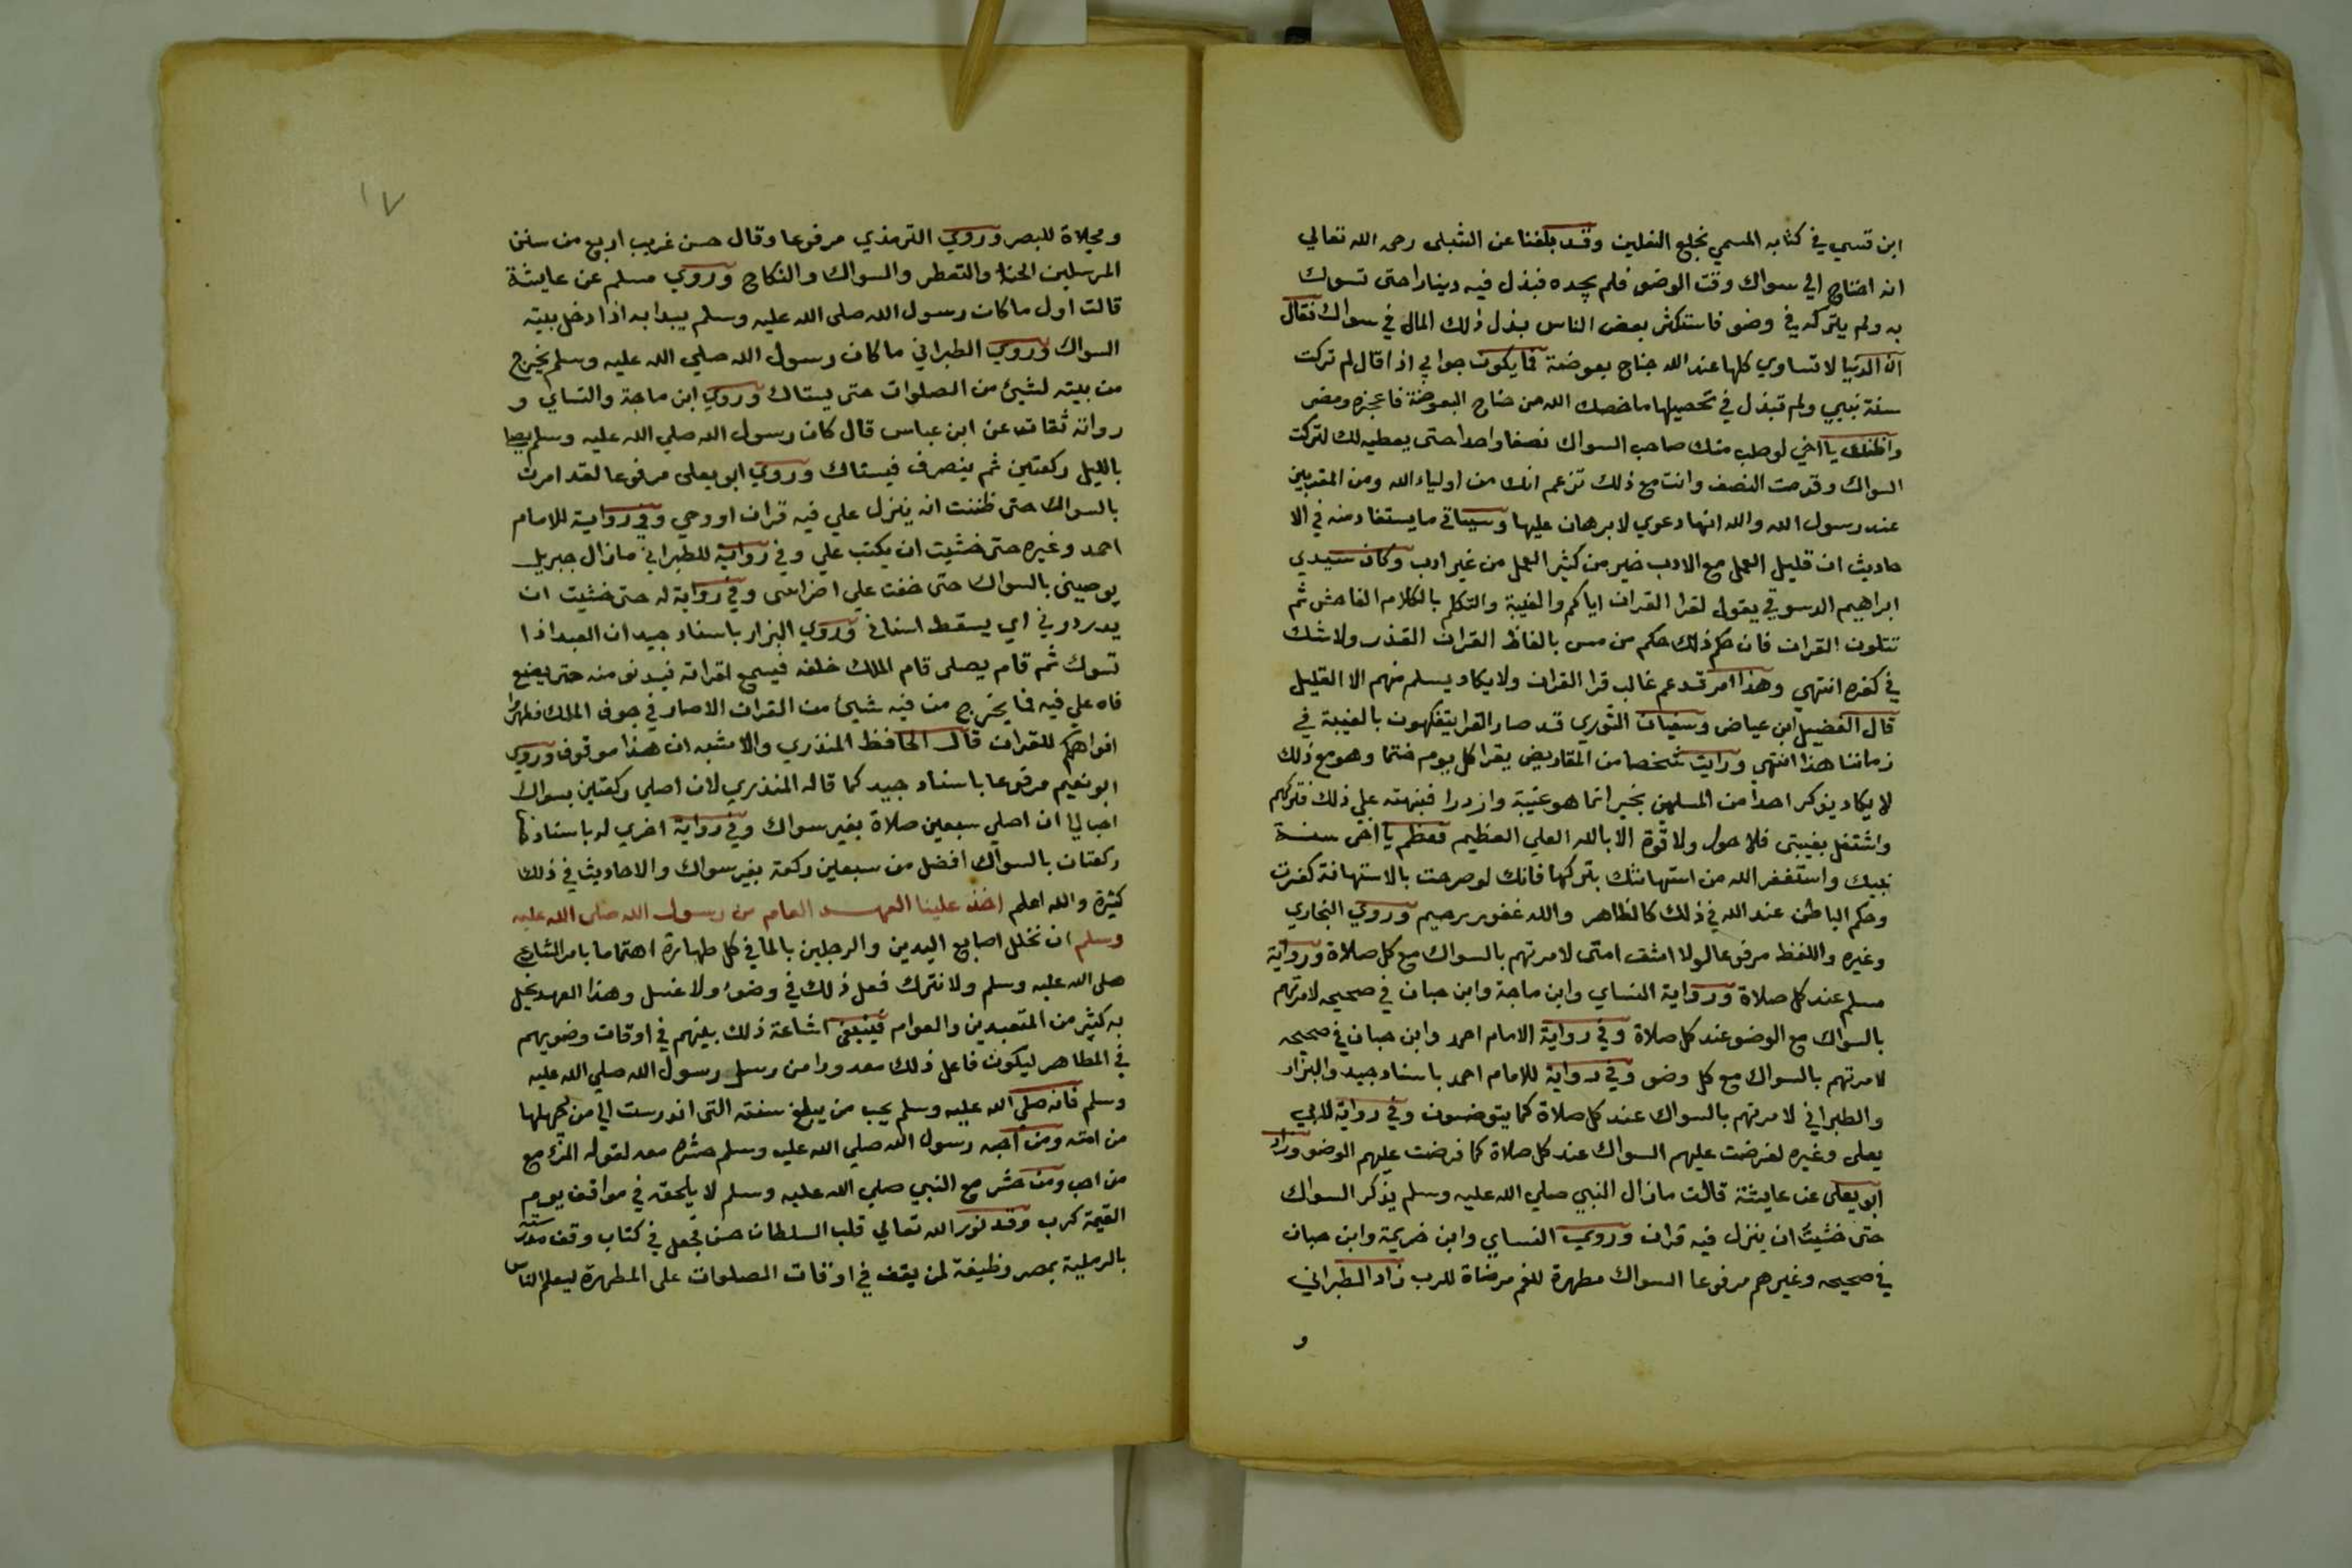 ابن قسي في كتابه المسمي بخلع النعلين وقد بلغنا عن الشبلى رحمه الله تعالي
انه احتاج الي سواك وقت الوضو فلم يجده فبذل فيه دينارا حتى تسوك
به ولم يتركه في وضو فاستكثر بعض الناس بذل ذلك المال في سواك فقال
ان الدنيا لا تساوي كلها عند الله جناح بعوضة فما يكون جوابي اذا قال لم تركت
سنة نبيي ولم تبذل في تحصيلها ما خصك الله من جناح البعوضة فاعجزه ومضى
واظنك يا اخي لو طلب منك صاحب السواك نصفا واحدا حتى يعطيه لك لتركت
السواك وقدمت النصف وانت مع ذلك تزعم انك من اولياء الله ومن المقربين
عند رسول الله والله انها دعوي لا برهان عليها وسياتي ما يستفاد منه في الا
حاديث ان قليل العمل مع الادب خير من كثير العمل من غير ادب وكان سيدي
ابراهيم الدسوقي يقول لقرا القران اياكم والغيبة والتكلم بالكلام الفاحش ثم
تتلون القران فان حكم ذلك حكم من مس بالفاظ القران القذر ولا شك
في كفره انتهي وهذا امر قد عم غالب قرا القران ولا يكاد يسلم منهم الا القليل
قال الفضيل ابن عياض وسفيان الثوري قد صار القرا يتفكهون بالغيبة في
زماننا هذا انتهي ورايت شخصا من القاريض يقرا كل يوم ختما وهو مع ذلك
لا يكاد يذكر احدا من المسلمين بخير انما هو غيبة وازدرا فنبهته علي ذلك فتركهم
واشتغل بغيبتى فلا حول ولا قوة الا بالله العلي العظيم فعظم يا اخي سنة
نبيك واستغفر الله من استهانتك بتركها فانك لو صرحت بالاستهانة كفرت
وحكم الباطن عند الله في ذلك كالظاهر والله غفور رحيم وروي البخاري
وغيره واللفظ مرفوعا لولا اشق امتى لامرتهم بالسواك مع كل صلاة ورواية
مسلم عند كل صلاة ورواية النساي وابن ماجة وابن حبان في صحيحه لامرتهم
بالسواك مع الوضو عند كل صلاة وفي رواية الامام احمد وابن حبان في صحيحه
لامرتهم بالسواك مع كل وضو وفي رواية للامام احمد باسناد جيد والبزار
والطبراني لامرتهم بالسواك عند كل صلاة كما يتوضون وفي رواية لابي
يعلى وغيره لفرضت عليهم السواك عند كل صلاة كما فرضت عليهم الوضو وزاد
ابو يعلى عن عايشة قالت مازال النبي صلي الله عليه وسلم يذكر السواك
حتى خشيت ان ينزل فيه قران وروي النساي وابن خزيمة وابن حبان
في صحيحه وغيرهم مرفوعا السواك مطهرة للفم مرضاة للرب زاد الطبراني
و
١٧
ومجلاة للبصر وروي الترمذي مرفوعا وقال حسن غريب اربع من سنن
المرسلين الحنا والتعطر والسواك والنكاح وروي مسلم عن عايشة
قالت اول ما كان رسول الله صلى الله عليه وسلم يبدا به اذا دخل بيته
السواك وروي الطبراني ما كان رسول الله صلي الله عليه وسلم يخرج
من بيته لشيئ من الصلوات حتى يستاك وروي ابن ماجة والنساي و
رواته ثقات عن ابن عباس قال كان رسول الله صلي الله عليه وسلم يصلي
بالليل ركعتين ثم ينصرف فيستاك وروي ابو يعلى مرفوعا لقد امرت
بالسواك حتى ظننت انه ينزل علي فيه قران او وحي وفي رواية للامام
احمد وغيره حتى خشيت ان يكتب علي وفي رواية للطبراني مازال جبريل
يوصيني بالسواك حتى خفت علي اضراسى وفي رواية له حتى خشيت ان
يدردرني اي يسقط اسناني وروي البزار باسناد جيد ان العبد اذا
تسوك ثم قام يصلى قام الملك خلفه فيسمع لقراته فيدنو منه حتى يضع
فاه علي فيه فما يخرج من فيه شيئ من القران الا صار في جوف الملك فطهروا
افواهكم للقران قال الحافظ المنذري والاشبه ان هذا موقوف وروي
ابو نعيم مرفوعا باسناد جيد كما قاله المنذري لان اصلي ركعتين بسواك
احب الي ان اصلي سبعين صلاة بغير سواك وفي رواية اخري له باسناد
ركعتان بالسواك افضل من سبعين ركعة بغير سواك والاحاديث في ذلك
كثيرة والله اعلم اخذ علينا العهد العام من رسول الله صلى الله عليه
وسلم ان نخلل اصابع اليدين والرجلين بالما في كل طهارة اهتماما بامر الشارع
صلى الله عليه وسلم ولا نترك فعل ذلك في وضوء ولا غسل وهذا العهد يخل
به كثير من المتعبدين والعوام فينبغى اشاعة ذلك بينهم في اوقات وضويهم
في المطاهر ليكون فاعل ذلك معدودا من رسل رسول الله صلي الله عليه
وسلم فانه صلي الله عليه وسلم يحب من يبلغ سنته التى اندرست الي من يجهلها
من امته ومن احبه رسول الله صلي الله عليه وسلم حشره معه لقوله المرء مع
من احب ومن حشر مع النبي صلي الله عليه وسلم لا يلحقه في مواقف يوم
القيمة كرب وقد نور الله تعالي قلب السلطان حسن فجعل في كتاب وقف مدرسته
بالرملية بمصر وظيفة لمن يقف في اوقات الصلوات على المطهرة ليعلم الناس